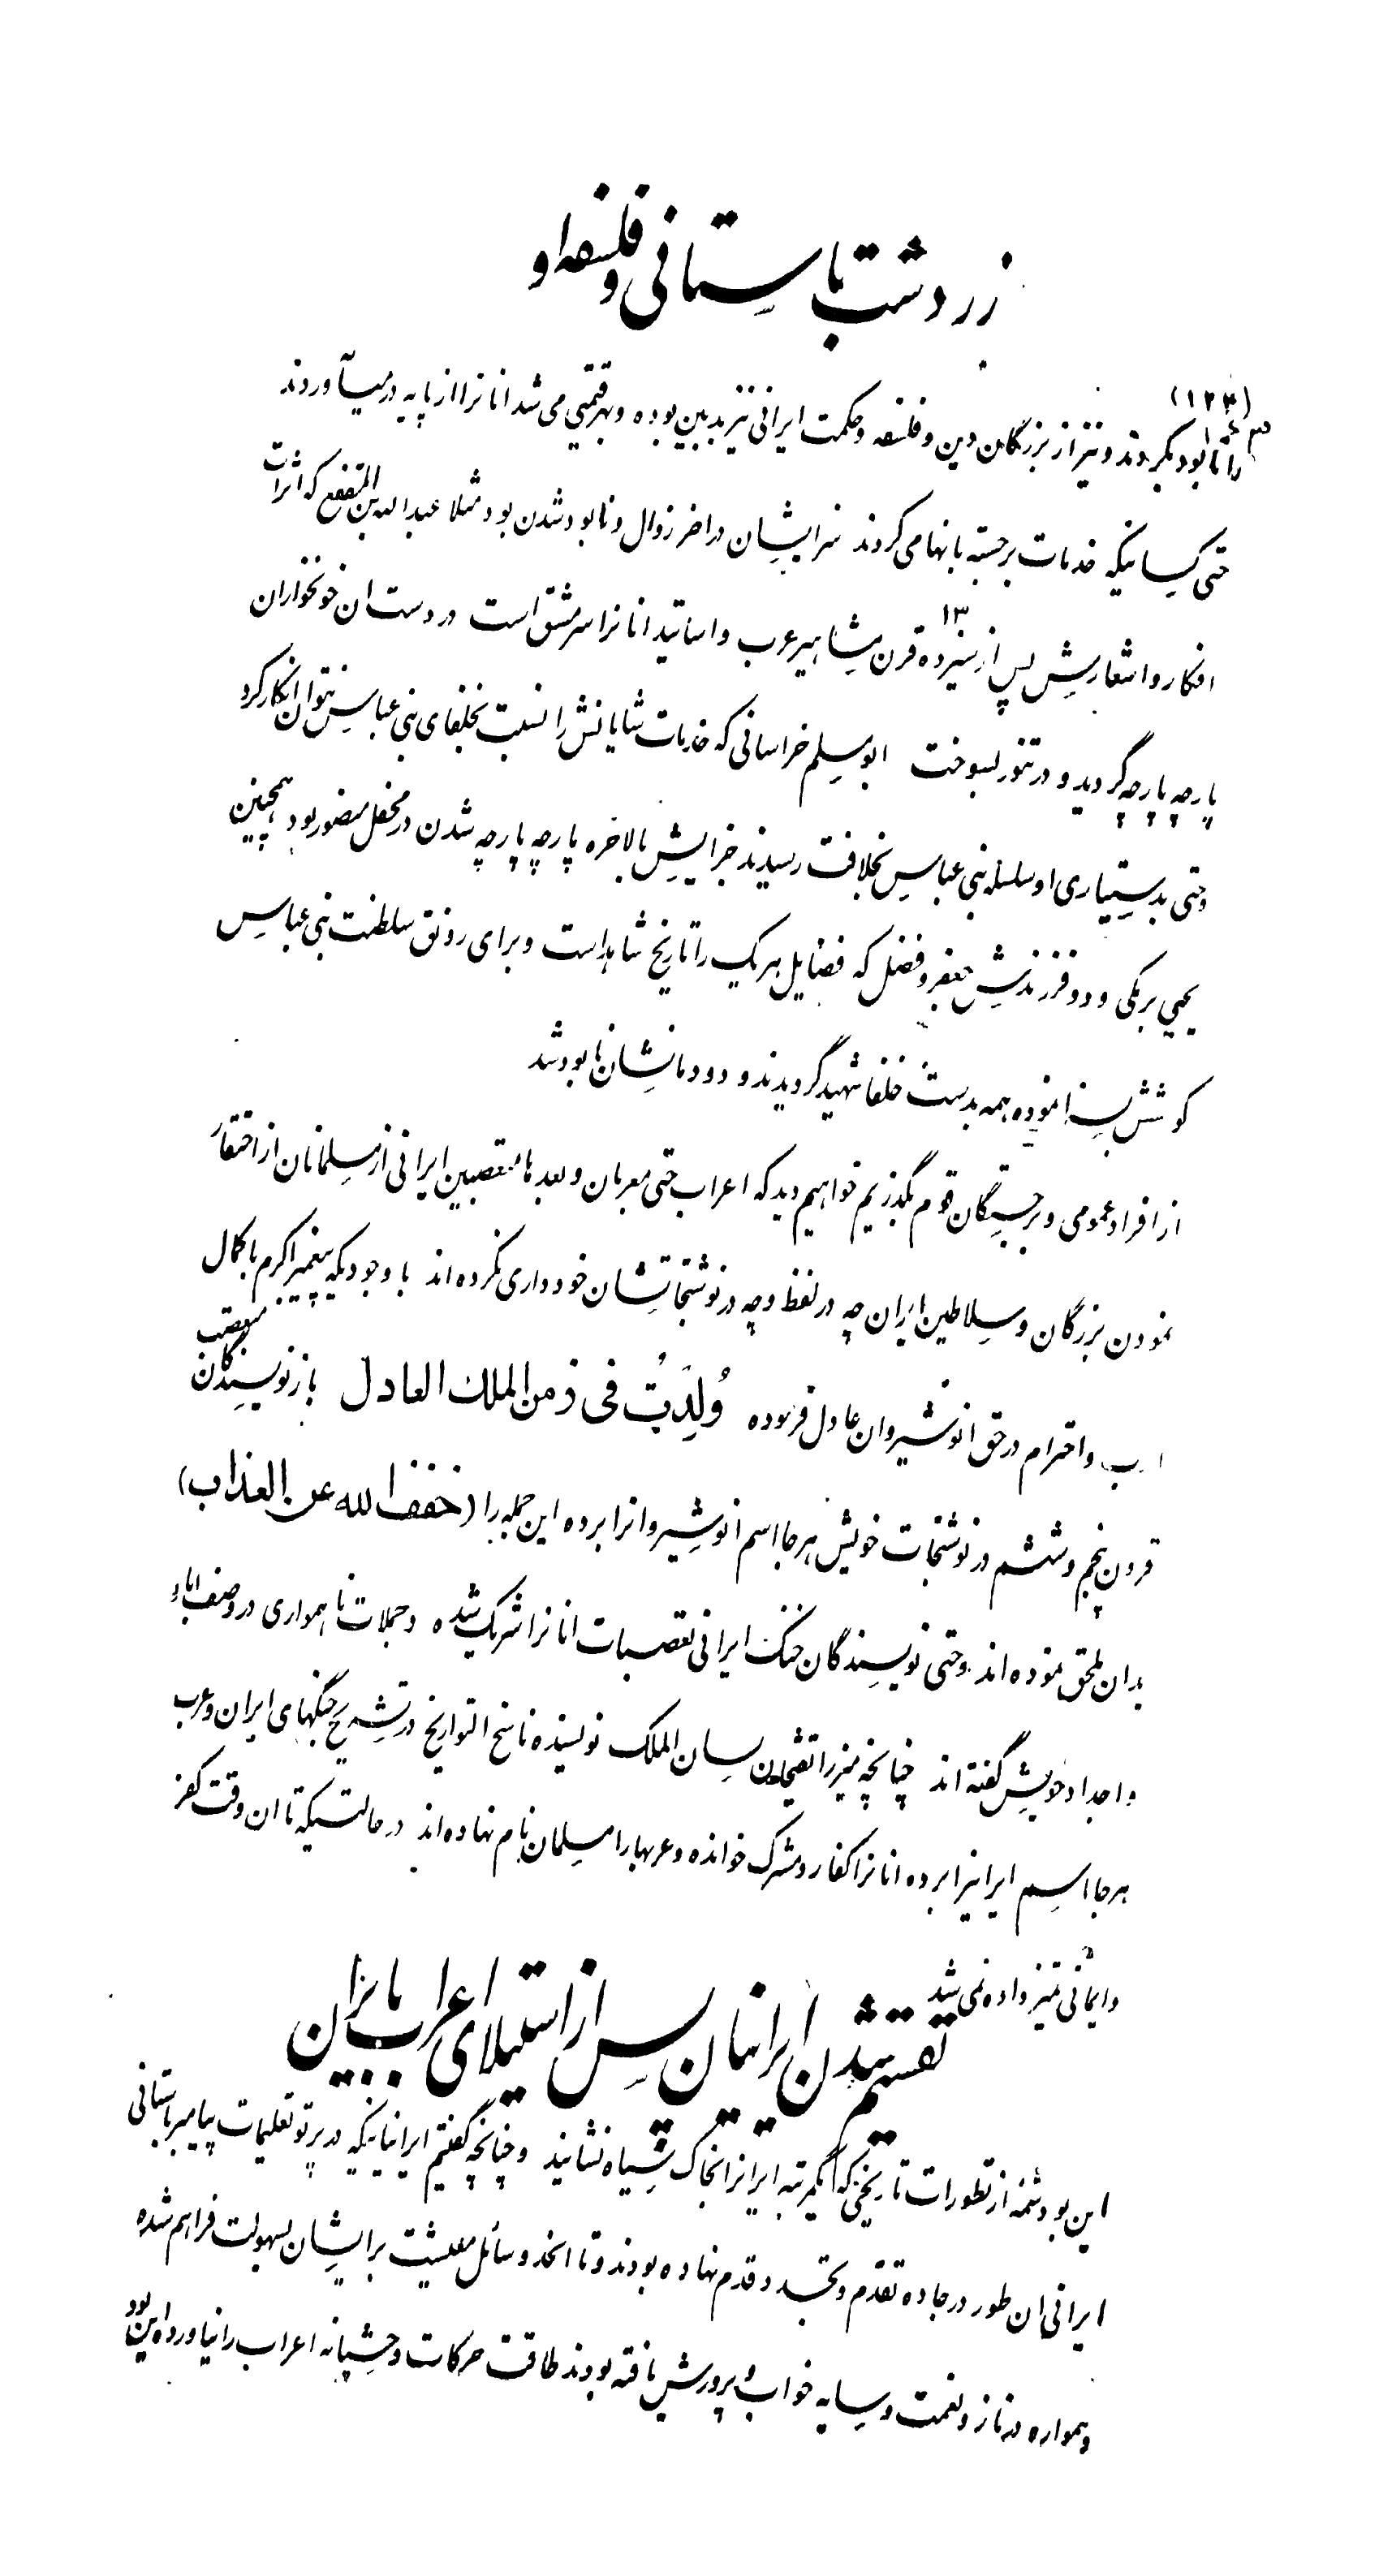 زردشت باستانی و فلسفه او
(۱۲۳)
را نابود بکردند و نیز از بزرگان دین و فلسفه و حکمت ایرانی نیز بدبین بوده و بهر قیمتی می شد انانرا از پایه درمیآوردند
حتی کسانیکه خدمات برجسته بانها می کردند سزایشان دراخر زوال و نابود شدن بود مثلا عبدالله بن المقفع که اثرات
افکار و اشعارش پس از سیزده ۱۳ قرن مشاهیر عرب و اساتید انانرا سرمشق است در دست ان خونخواران
پارچه پارچه گردید و در تنور بسوخت ابومسلم خراسانی که خدمات شایانش را نسبت بخلفای بنی عباس نتوان انکار کرد
وحتی بدستیاری او سلسله بنی عباس بخلافت رسیدند جزایش بالاخره پارچه پارچه شدن در محفل منصور بود همچنین
یحیی برمکی و دو فرزندش جعفر و فضل که فضایل هر یک را تاریخ شاهد است و برای رونق سلطنت بنی عباس
کوشش بسزا نموده همه بدست خلفا شهید گردیدند و دودمانشان نابود شد
از افراد عمومی و برجستگان قوم بگذریم خواهیم دید که اعراب حتی معربان و بعدها متعصبین ایرانی از مسلمانان از احتقار
نمودن بزرگان و سلاطین ایران چه در لفظ و چه در نوشتجاتشان خودداری نکرده اند با وجودیکه پیغمبر اکرم با کمال
ادب و احترام در حق انوشیروان عادل فرموده وُلِدَتُ فی زمن الملك العادل باز نویسندگان متعصب
قرون پنجم و ششم در نوشتجات خویش هرجا اسم انوشیروانرا برده این جمله را (خفف الله عن العذاب)
بدان ملحق نموده اند وحتی نویسندگان خنک ایرانی تعصبات انانرا شریک شده و جملات ناهمواری در وصف اباء
واجداد خویش گفته اند چنانچه میرزا تقیخان لسان الملک نویسنده ناسخ التواریخ در تشریح جنگهای ایران و عرب
هرجا اسم ایرانیرا برده انانرا کفار و مشرک خوانده و عربها را مسلمان نام نهاده اند در حالتیکه تا ان وقت کفر
و ایمانی تمیز داده نمی شد
تقسیم شدن ایرانیان پس از استیلای اعراب بایران
این بود شمه از تطورات تاریخی که یکمرتبه ایرانرا بخاک سیاه نشانید و چنانچه گفتیم ایرانیانیکه در پرتو تعلیمات پیامبر باستانی
ایرانی ان طور در جاده تقدم و تجدد قدم نهاده بودند و تا انحد وسائل معیشت برایشان بسهولت فراهم شده
و همواره در ناز و نعمت و سایه خواب و پرورش یافته بودند طاقت حرکات وحشیانه اعراب را نیاورده این بود